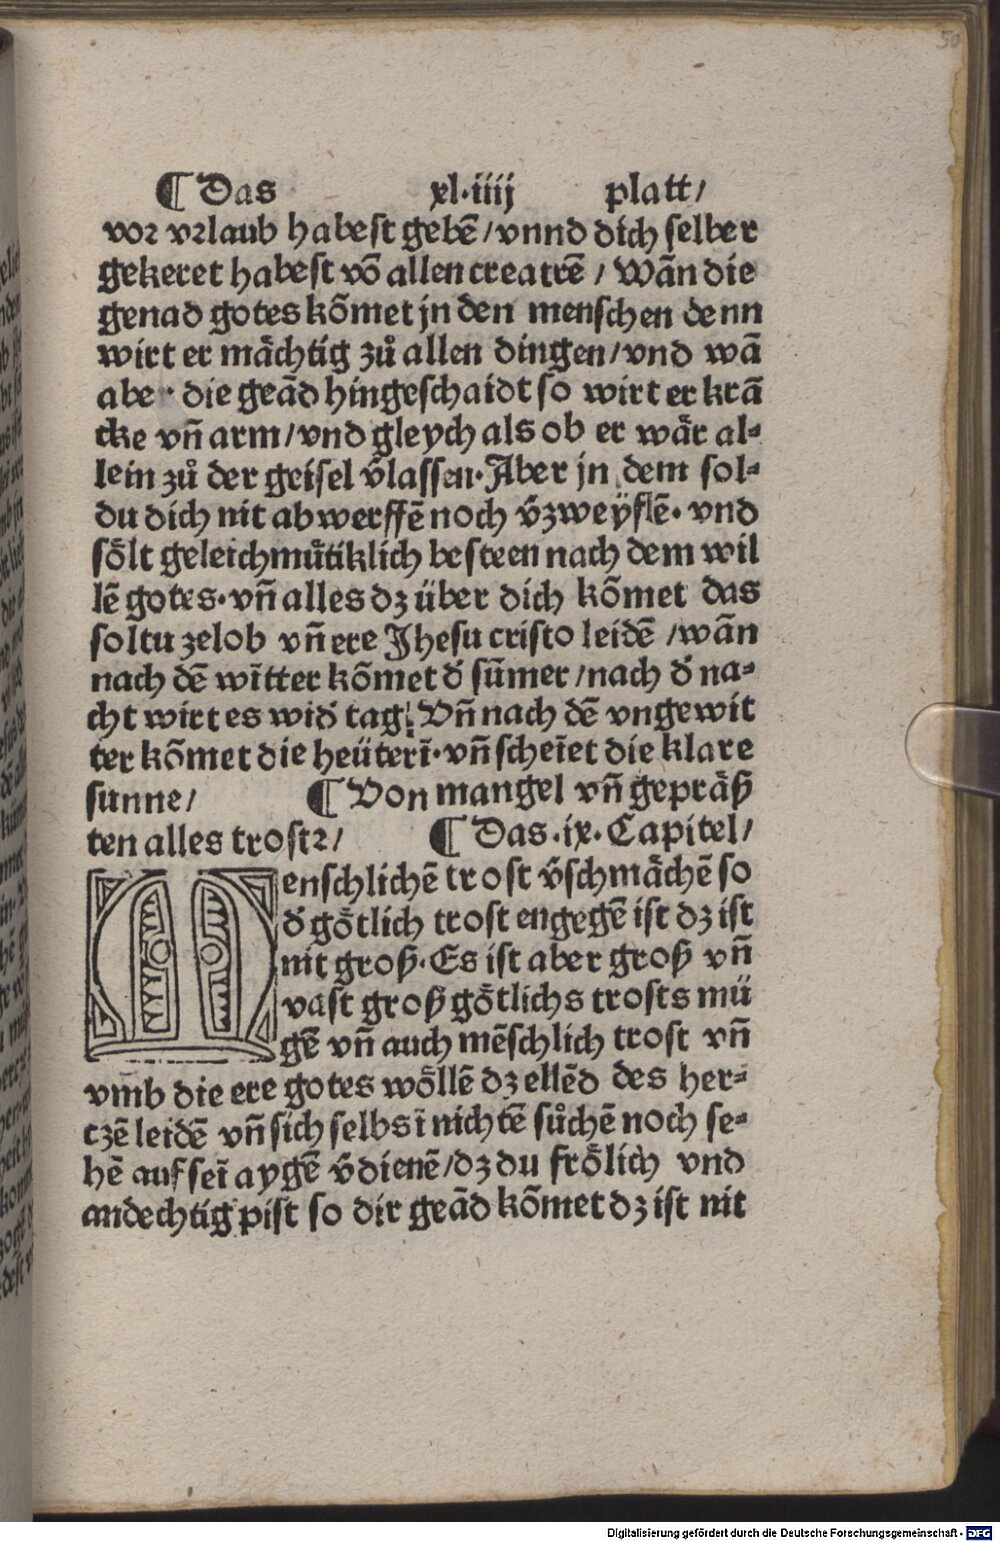 50
¶ Das xl·iiij platt/
vor vrlaub habest gebē/vnnd dich selber
gekeret habest vō allen creatrē / Wān die
genad gotes kōmet jn den menschen denn
wirt er mächtig zů allen dingen/vnd wā
aber die geād hingeschaidt so wirt er krā
cke vñ arm/vnd gleych als ob er wär al⸗
lein zů der geisel v̄lassen·Aber jn dem sol⸗
du dich nit abwerffē noch v̄zweyflē· vnd
sölt geleichmůtiklich besteen nach dem wil
lē gotes·vñ alles dz über dich kōmet das
soltu zelob vñ ere Jhesu cristo leidē /wān
nach dē wītter kōmet d̄ sūmer/nach d̄ na⸗
cht wirt es wid̄ tag· Vñ nach dē vngewit
ter kōmet die heüterī·vñ scheīet die klare
sunne/ ¶ Von mangel vñ gepräß
ten alles trostꝛ/ ¶ Das·ix·Capitel/
Menschlichē trost v̄schmächē so
d̄ götlich trost engegē ist dz ist
nit groß·Es ist aber groß vñ
vast groß götlichs trosts mü
gē vñ auch mēschlich trost vñ
vmb die ere gotes wöllē dz ellēd des her⸗
tzē leidē vñ sich selbs ī nichtē sůchē noch se⸗
hē auf seī aygē v̄dienē/dz du frölich vnd
andechtig pist so dir geād kōmet dz ist nit
Digitalisierung gefördert durch die Deutsche Forschungsgemeinschaft - DFG